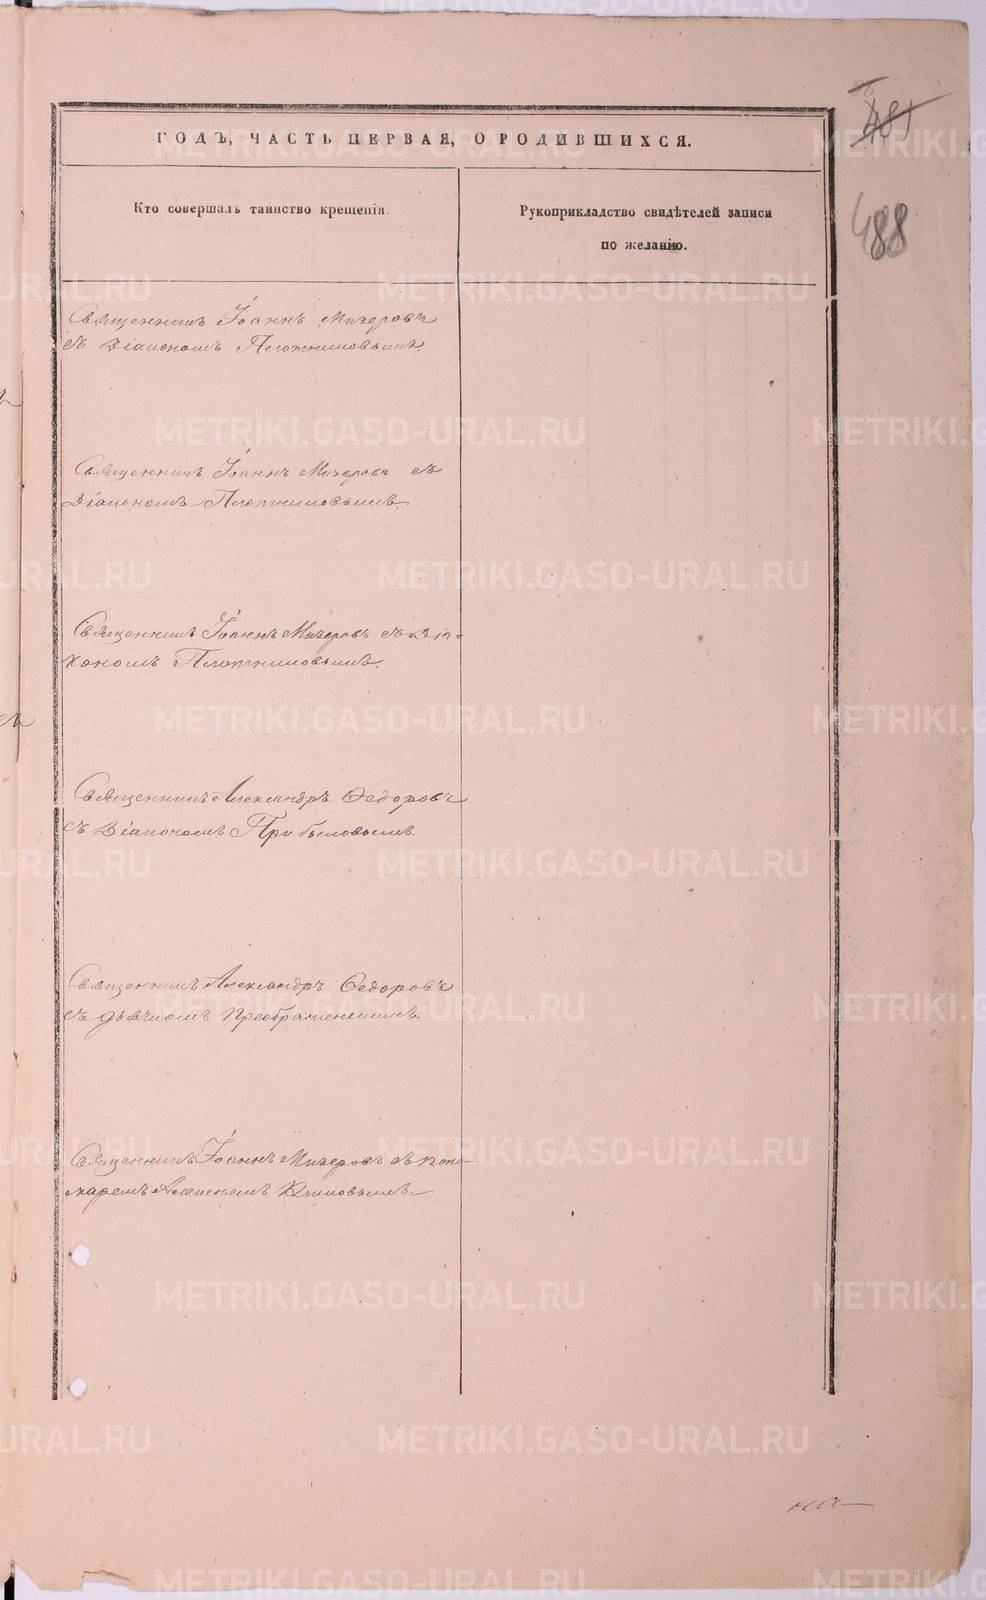 481
488
ГОДЪ, ЧАСТЬ ПЕРВАЯ, О РОДИВШИХСЯ.
Кто совершалъ таинство крещенія.
Рукоприкладство свидѣтелей записи
по желанію.
Священникъ Іоаннъ Мичеровъ
съ Діакономъ Плотниковымъ.
Священникъ Іоаннъ Мичеровъ съ
Діакономъ Плотниковымъ.
Священникъ Іоаннъ Мичеровъ съ Діа-
кономъ Плотниковымъ.
Священникъ Александръ Ѳедоровъ
съ Діакономъ Прибыловымъ.
Священникъ Александръ Ѳедоровъ
съ дьячкомъ Преображенскимъ.
Священникъ Іоаннъ Мичеровъ съ поно-
маремъ
METRIKI.GASO-URAL.RU